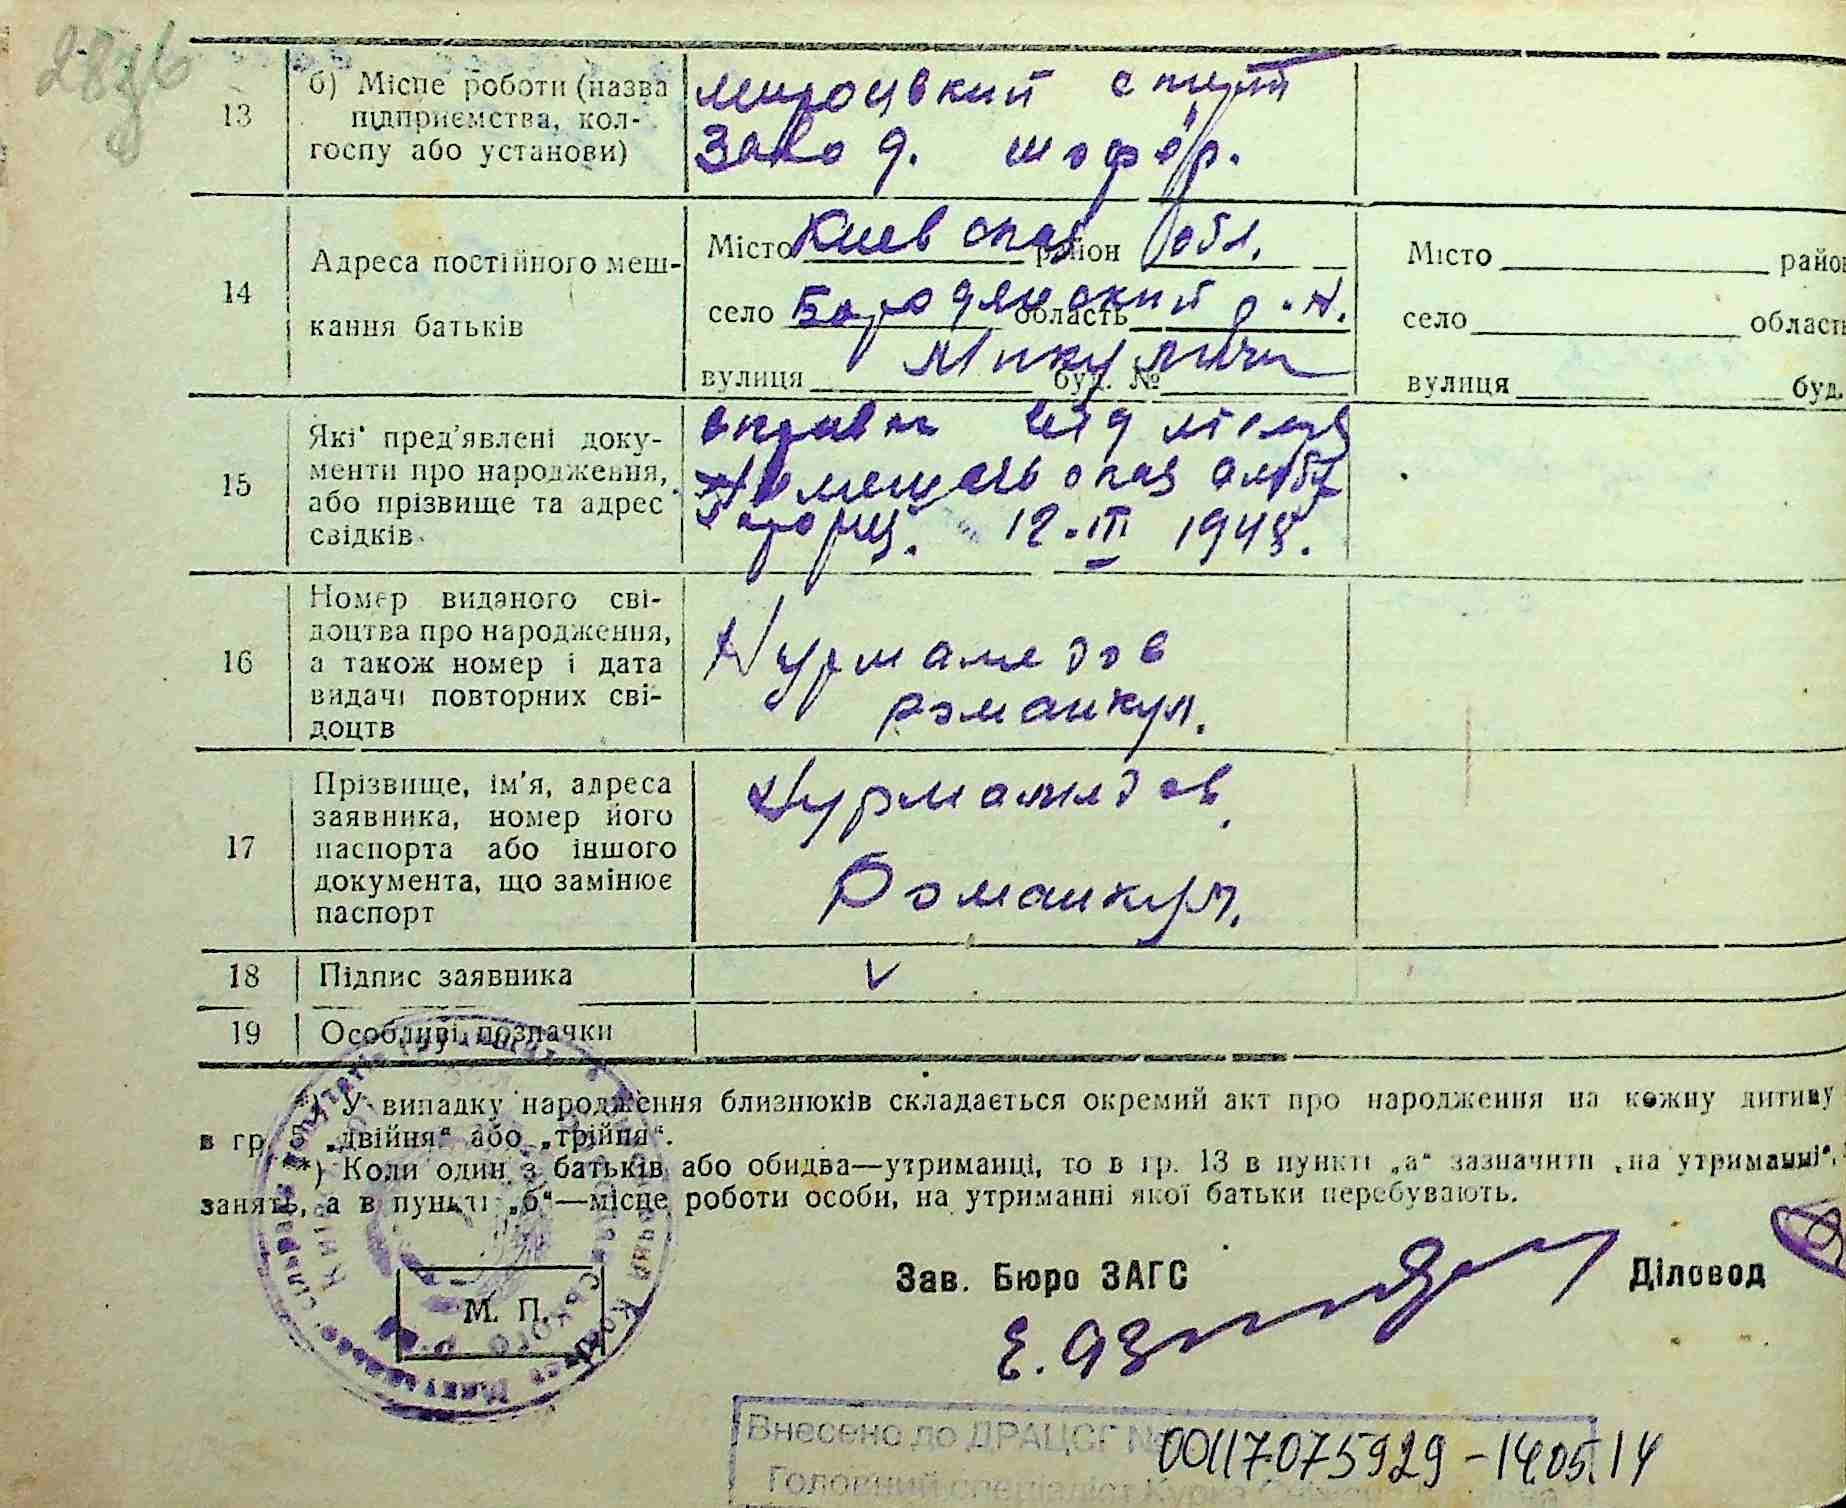 28зв
13
б) Місце роботи (назва
підприємства, кол-
госпу або установи)
мироцвкий спирт
Завод. шофёр.
14
Адреса постійного меш-
кання батьків
Місто Киевская район обл.
село Бородянский область р-н.
вулиця Микуличи буд. №
Місто район
село область
вулиця буд.
15
Які пред’явлені доку-
менти про народження,
або прізвище та адрес
свідків
справка
12.III 1948.
16
Номер виданого сві-
доцтва про народження,
а також номер і дата
видачі повторних сві-
доцтв
Нурмамедов
Романкул.
17
Прізвище, ім’я, адреса
заявника, номер його
паспорта або іншого
документа, що замінює
паспорт
Нурмамедов
Романкул.
18
Підпис заявника
V
19
Особливі позначки
*) У випадку народження близнюків складається окремий акт про народження на кожну дитину
в гр. 5 „двійня“ або „трійня“.
**) Коли один з батьків або обидва—утриманці, то в гр. 13 в пункті „а“ зазначити „на утриманні“,
занять, а в пункті „б“—місце роботи особи, на утриманні якої батьки перебувають.
Зав. Бюро ЗАГС
Діловод
М. П.
Внесено до ДРАЦСГ № 00117075929-14.05.14
Головний спеціаліст